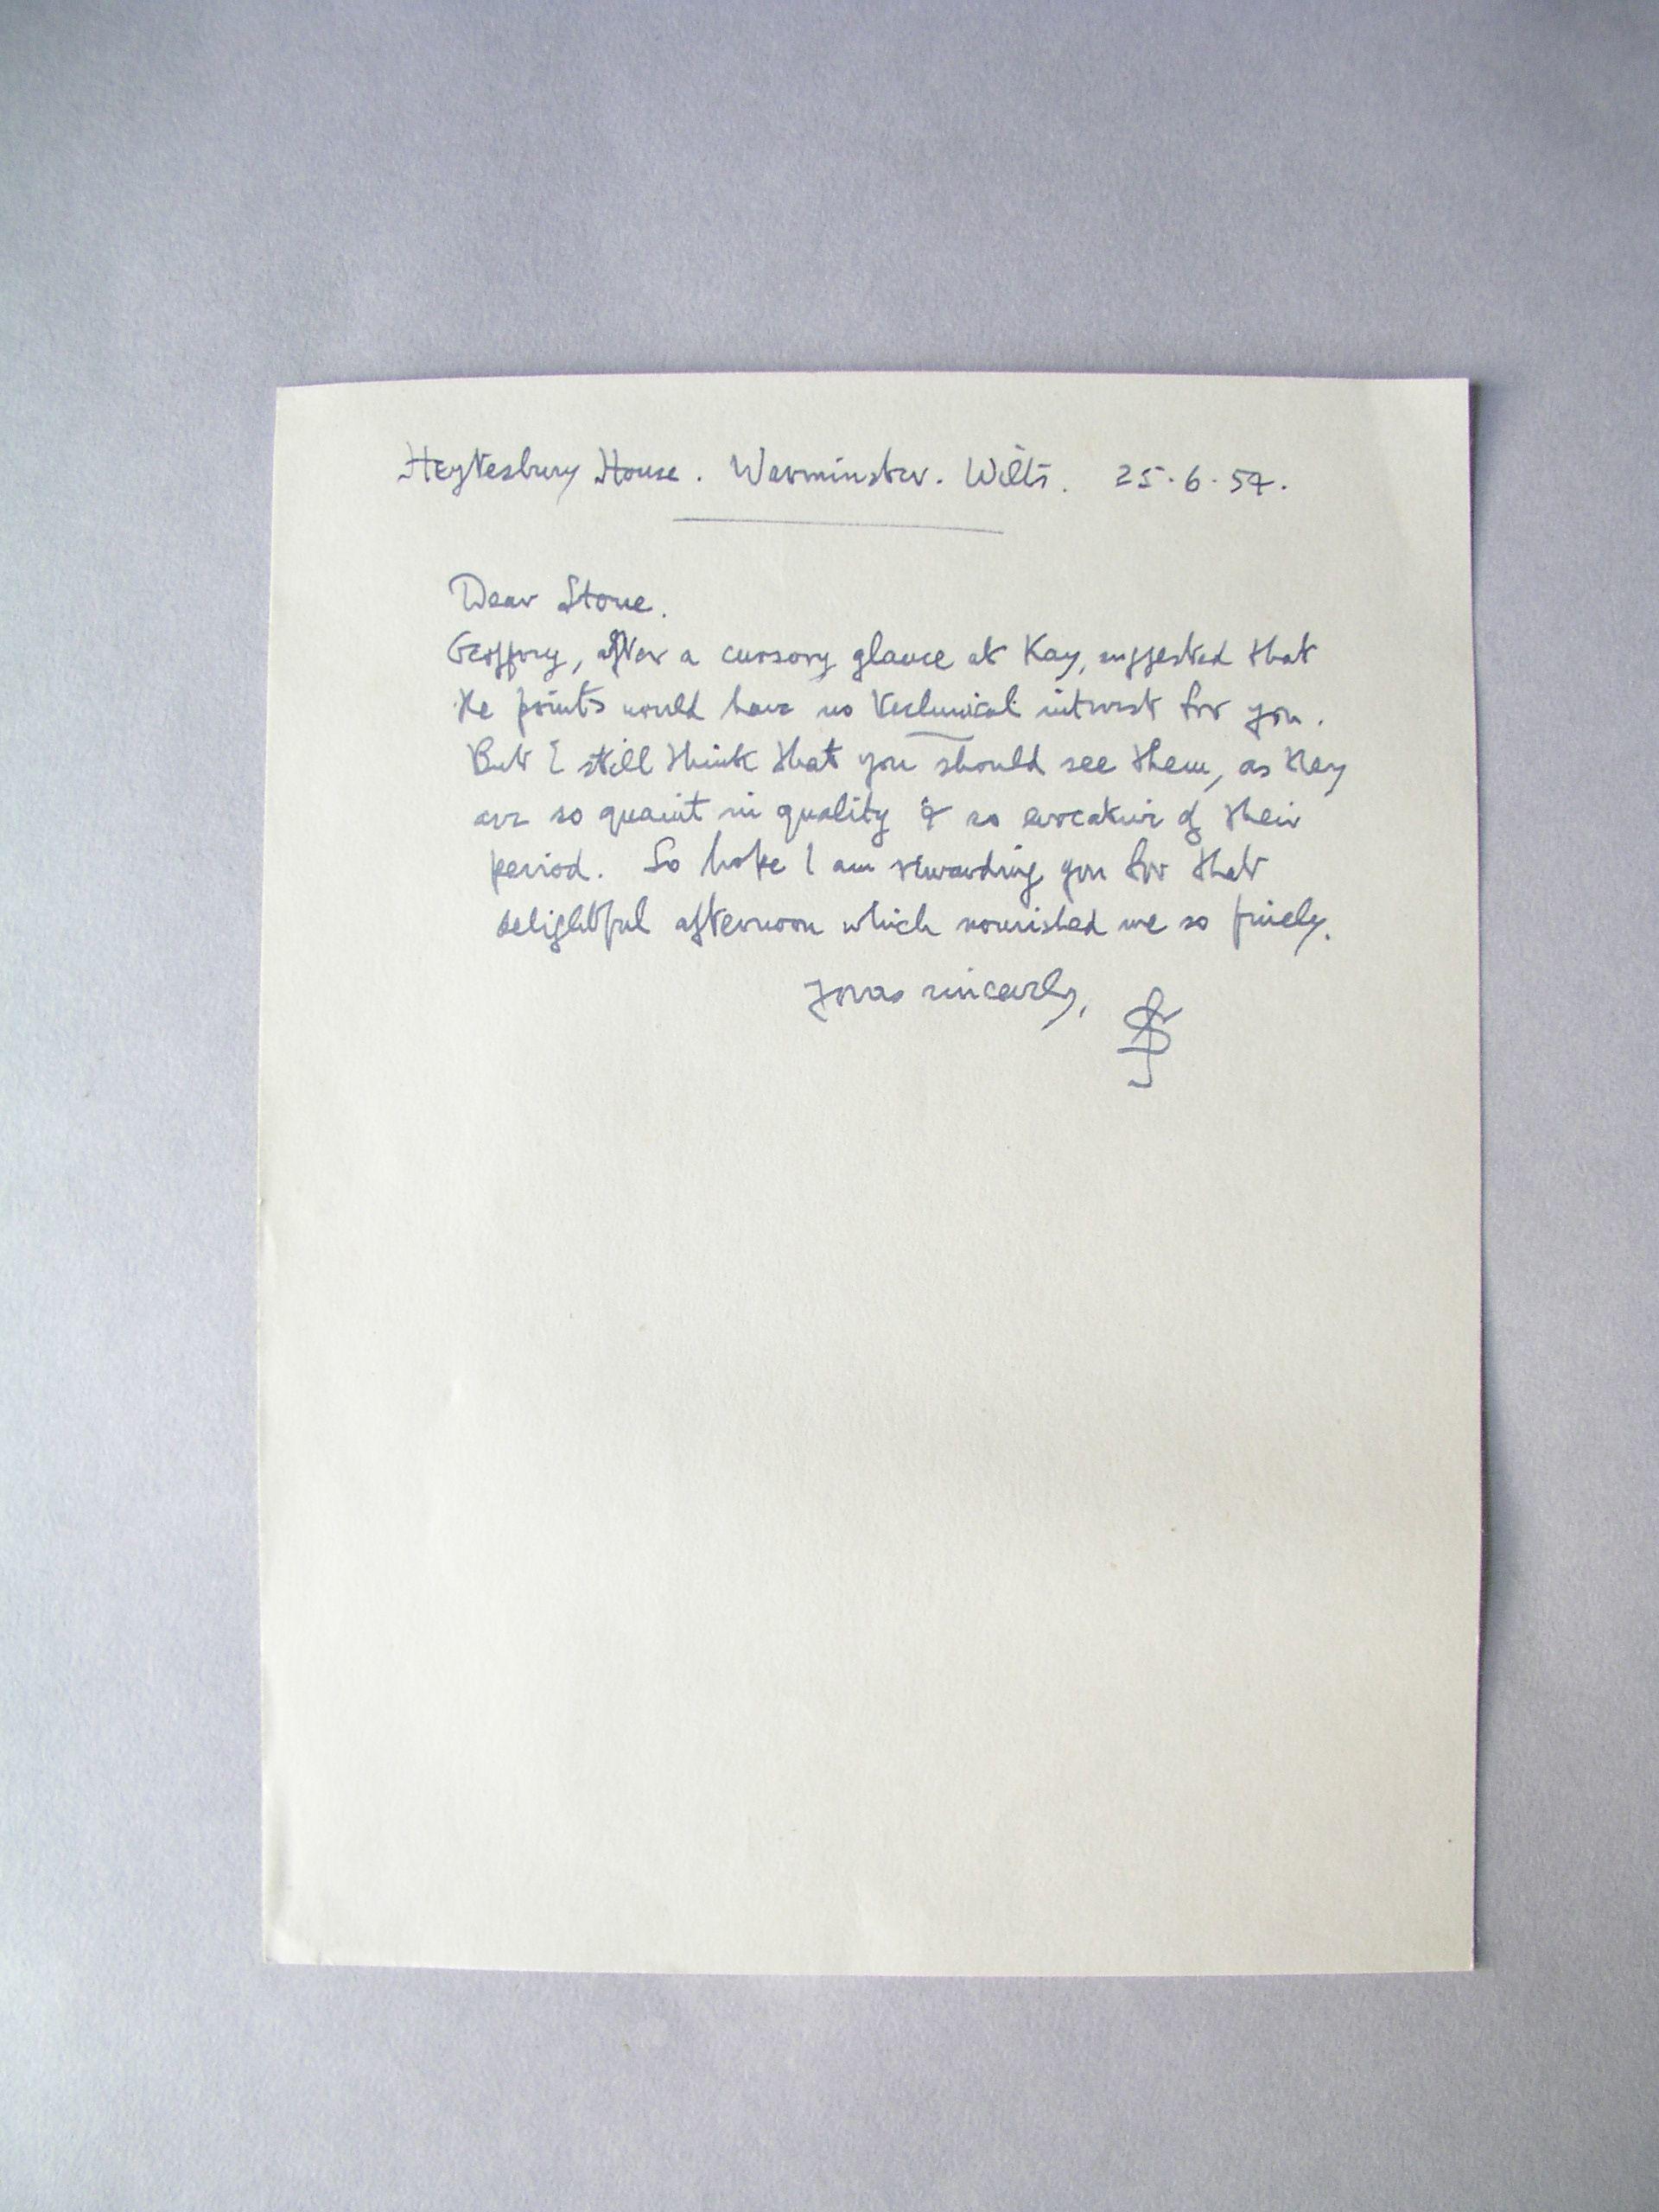 Heytesbury House. Warminster. Wilts. 25.6.54.
Dear Stone.
Geoffrey, after a cursory glance at Kay, suggested that
the prints would have no technical interest for you.
But I still think that you should see them, as they
are so quaint in quality & so evocative of their
period. So hope I am rewarding you for that
delightful afternoon which nourished me so finely.
Yours sincerely,
SS